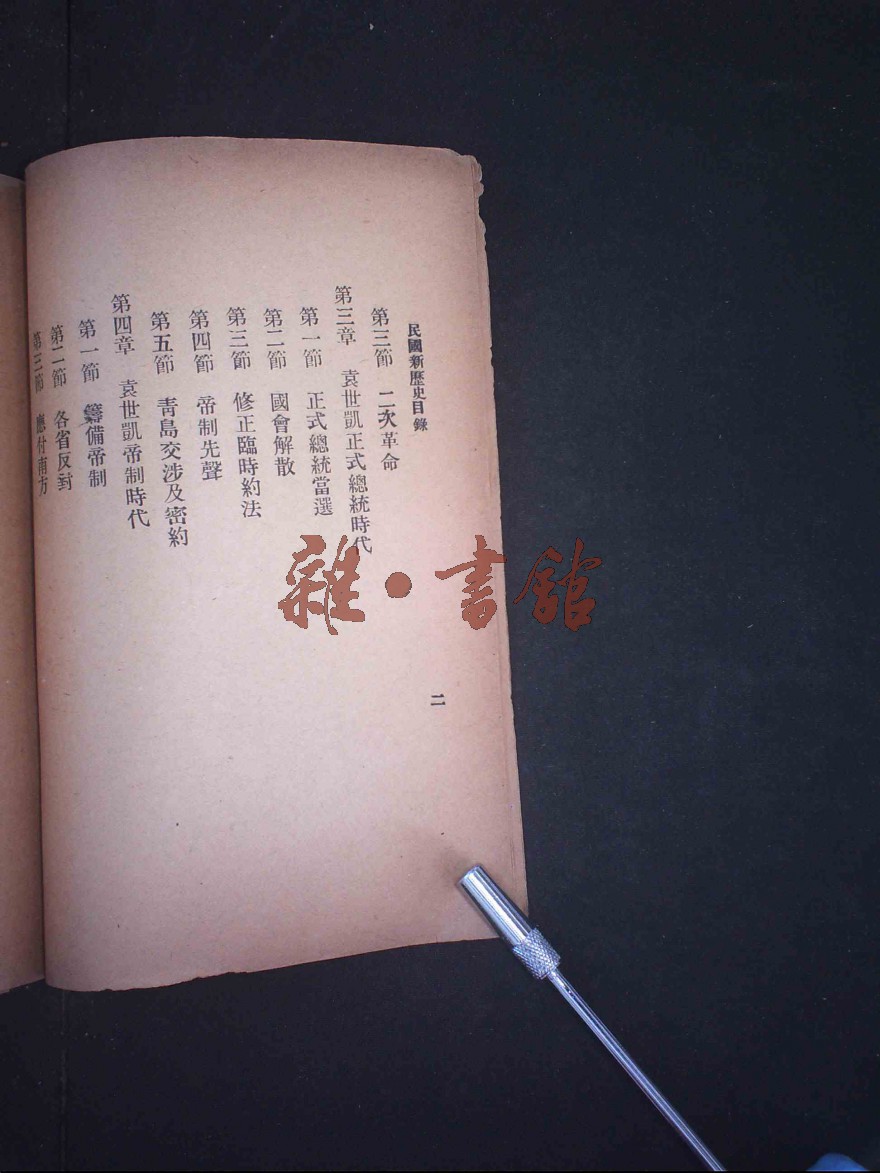 民國新歷史目錄
第三節 二次革命
第三章 袁世凱正式總統時代
第一節 正式總統當選
第二節 國會解散
第三節 修正臨時約法
第四節 帝制先聲
第五節 靑島交涉及密約
第四章 袁世凱帝制時代
第一節 籌備帝制
第二節 各省反對
第三節 應付南方
二
雜·書館